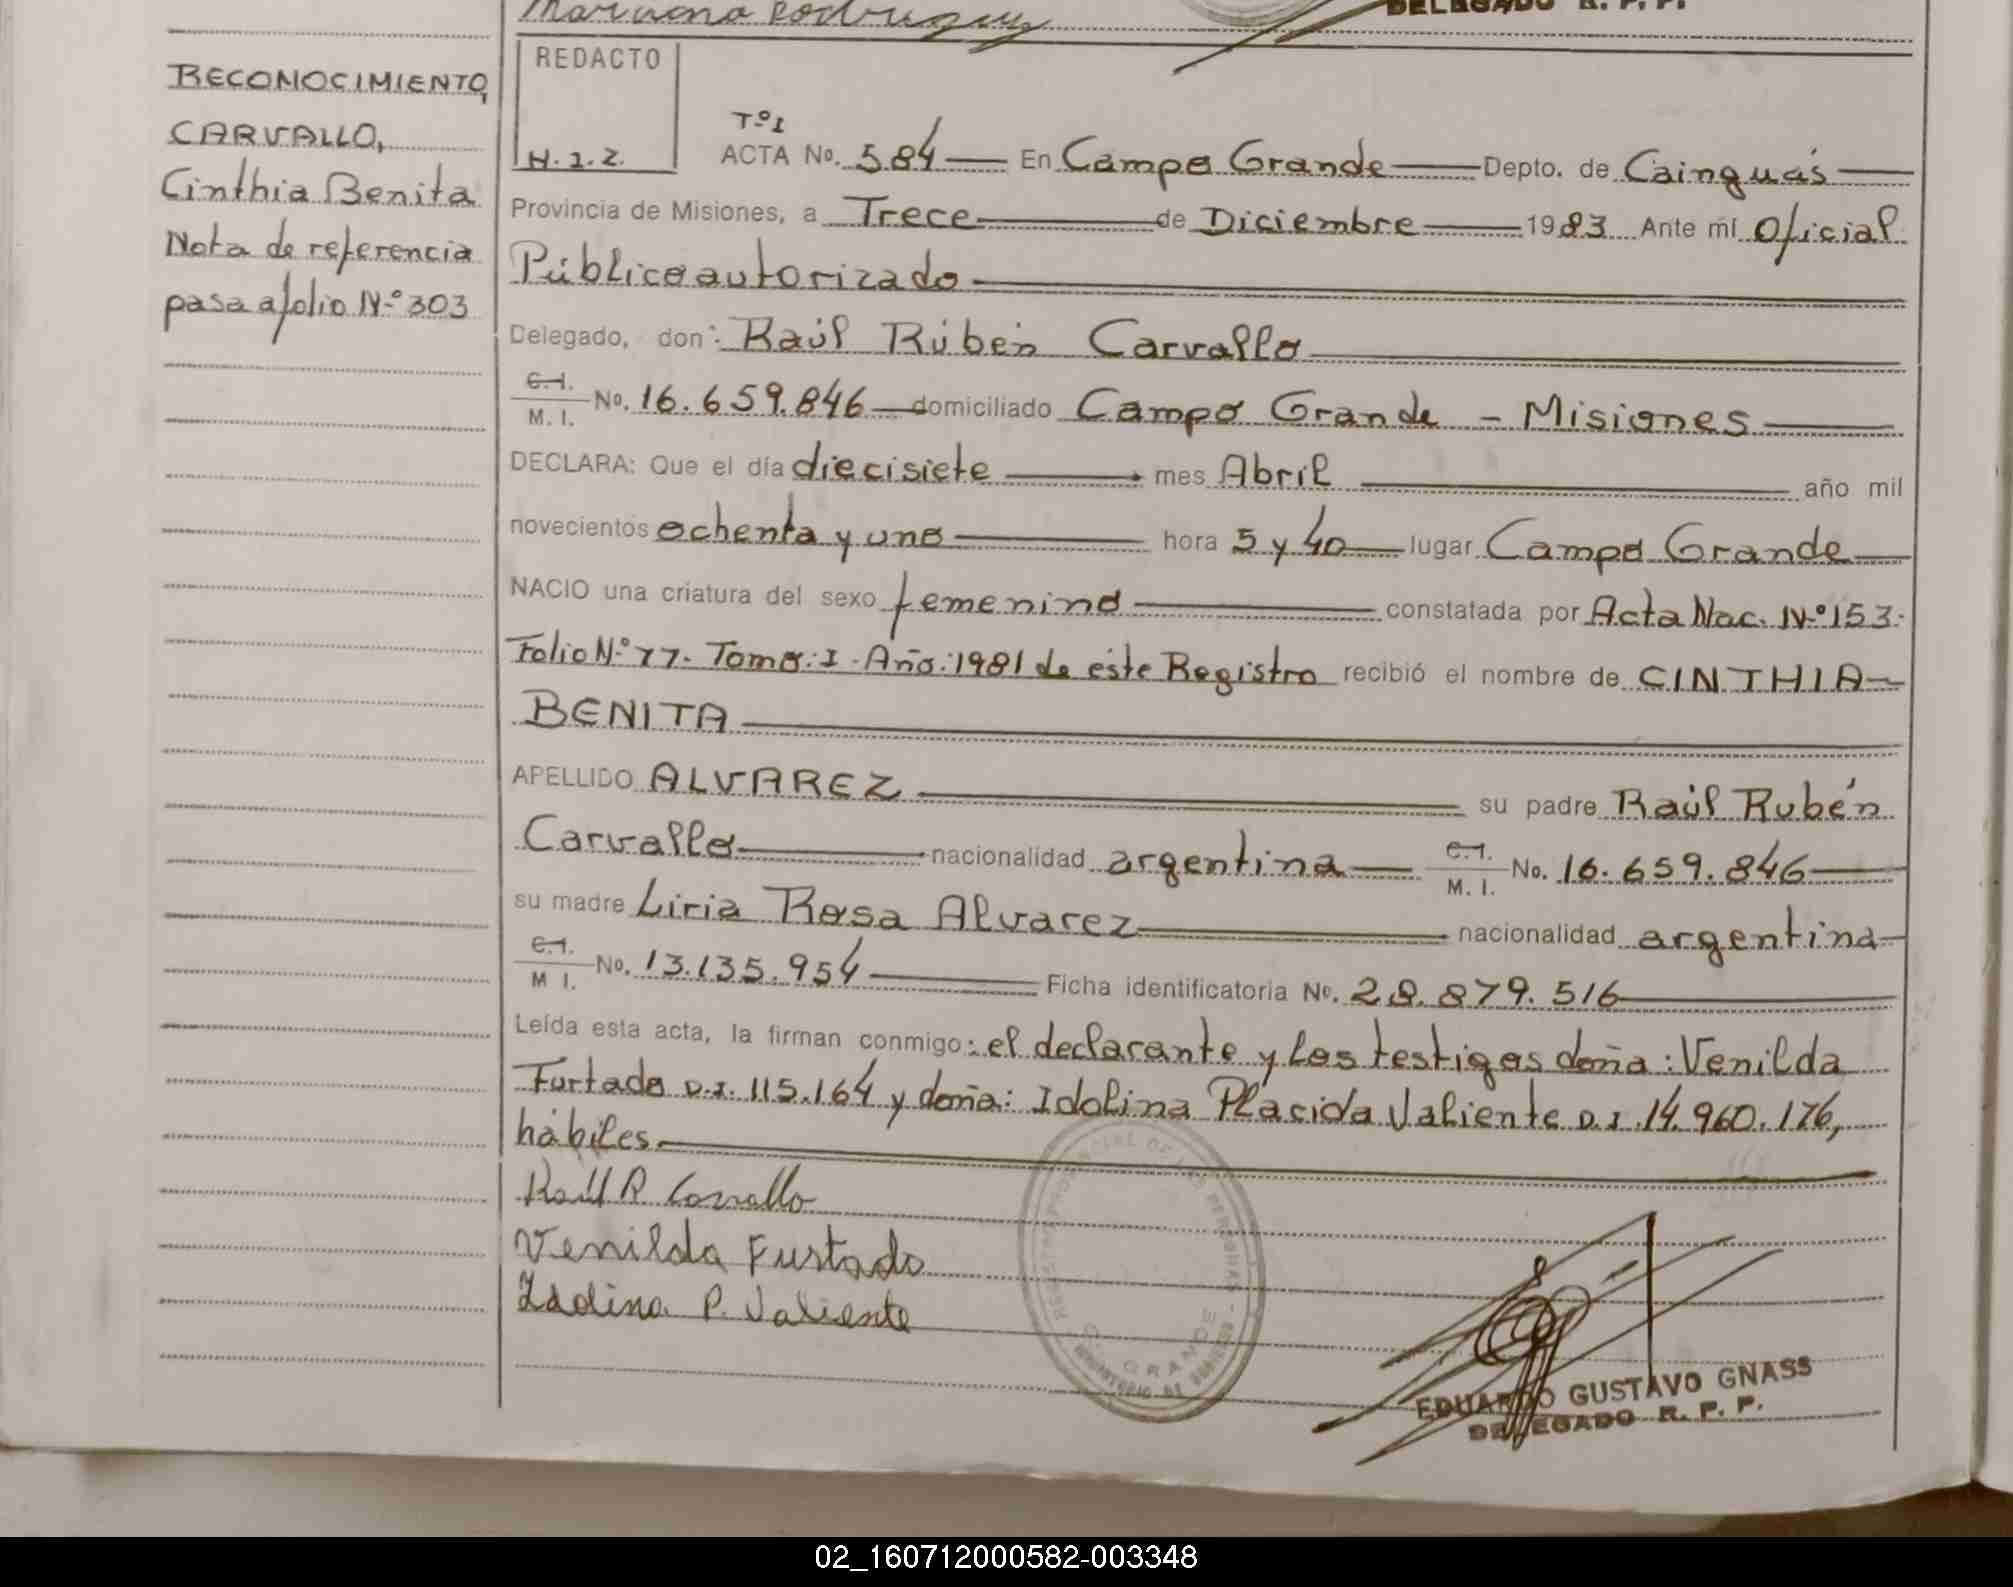 Mariana Rodriguez
DELEGADO R. P. P.
RECONOCIMIENTO,
CARVALLO,
Cinthia Benita
Nota de referencia
pasa a folio N.º 303
REDACTO
H.I.Z.
Tº I
ACTA No. 584 En Campo Grande Depto. de Cainguás
Provincia de Misiones, a Trece de Diciembre 1983 Ante mí Oficial
Público autorizado
Delegado, don: Raúl Rúben Carvallo
C.I. M. I. No. 16.659.846 domiciliado Campo Grande - Misiones
DECLARA: Que el día diecisiete mes Abril año mil
novecientos ochenta y uno hora 5 y 40 lugar Campo Grande
NACIO una criatura del sexo femenino constatada por Acta Nac. N.º 153.
Folio N.º 77. Tomo: I. Año: 1981 de éste Registro recibió el nombre de CINTHIA
BENITA
APELLIDO ALVAREZ su padre Raúl Rubén
Carvallo nacionalidad argentina C.I. M. I. No. 16.659.846
su madre Liria Rosa Alvarez nacionalidad argentina
C.I. M I. No. 13.135.954 Ficha identificatoria No. 28.879.516
Leída esta acta, la firman conmigo: el declarante y los testigos doña: Venilda
Furtado D.I. 115.164 y doña: Idolina Placida Valiente D.I. 14.960.176,
hábiles.
Raúl R Carvallo
Venilda Furtado
Idolina P. Valiente
REGISTRO PROVINCIAL DE LAS PERSONAS
C. GRANDE
EDUARDO GUSTAVO GNASS
DELEGADO R. P. P.
02_160712000582-003348